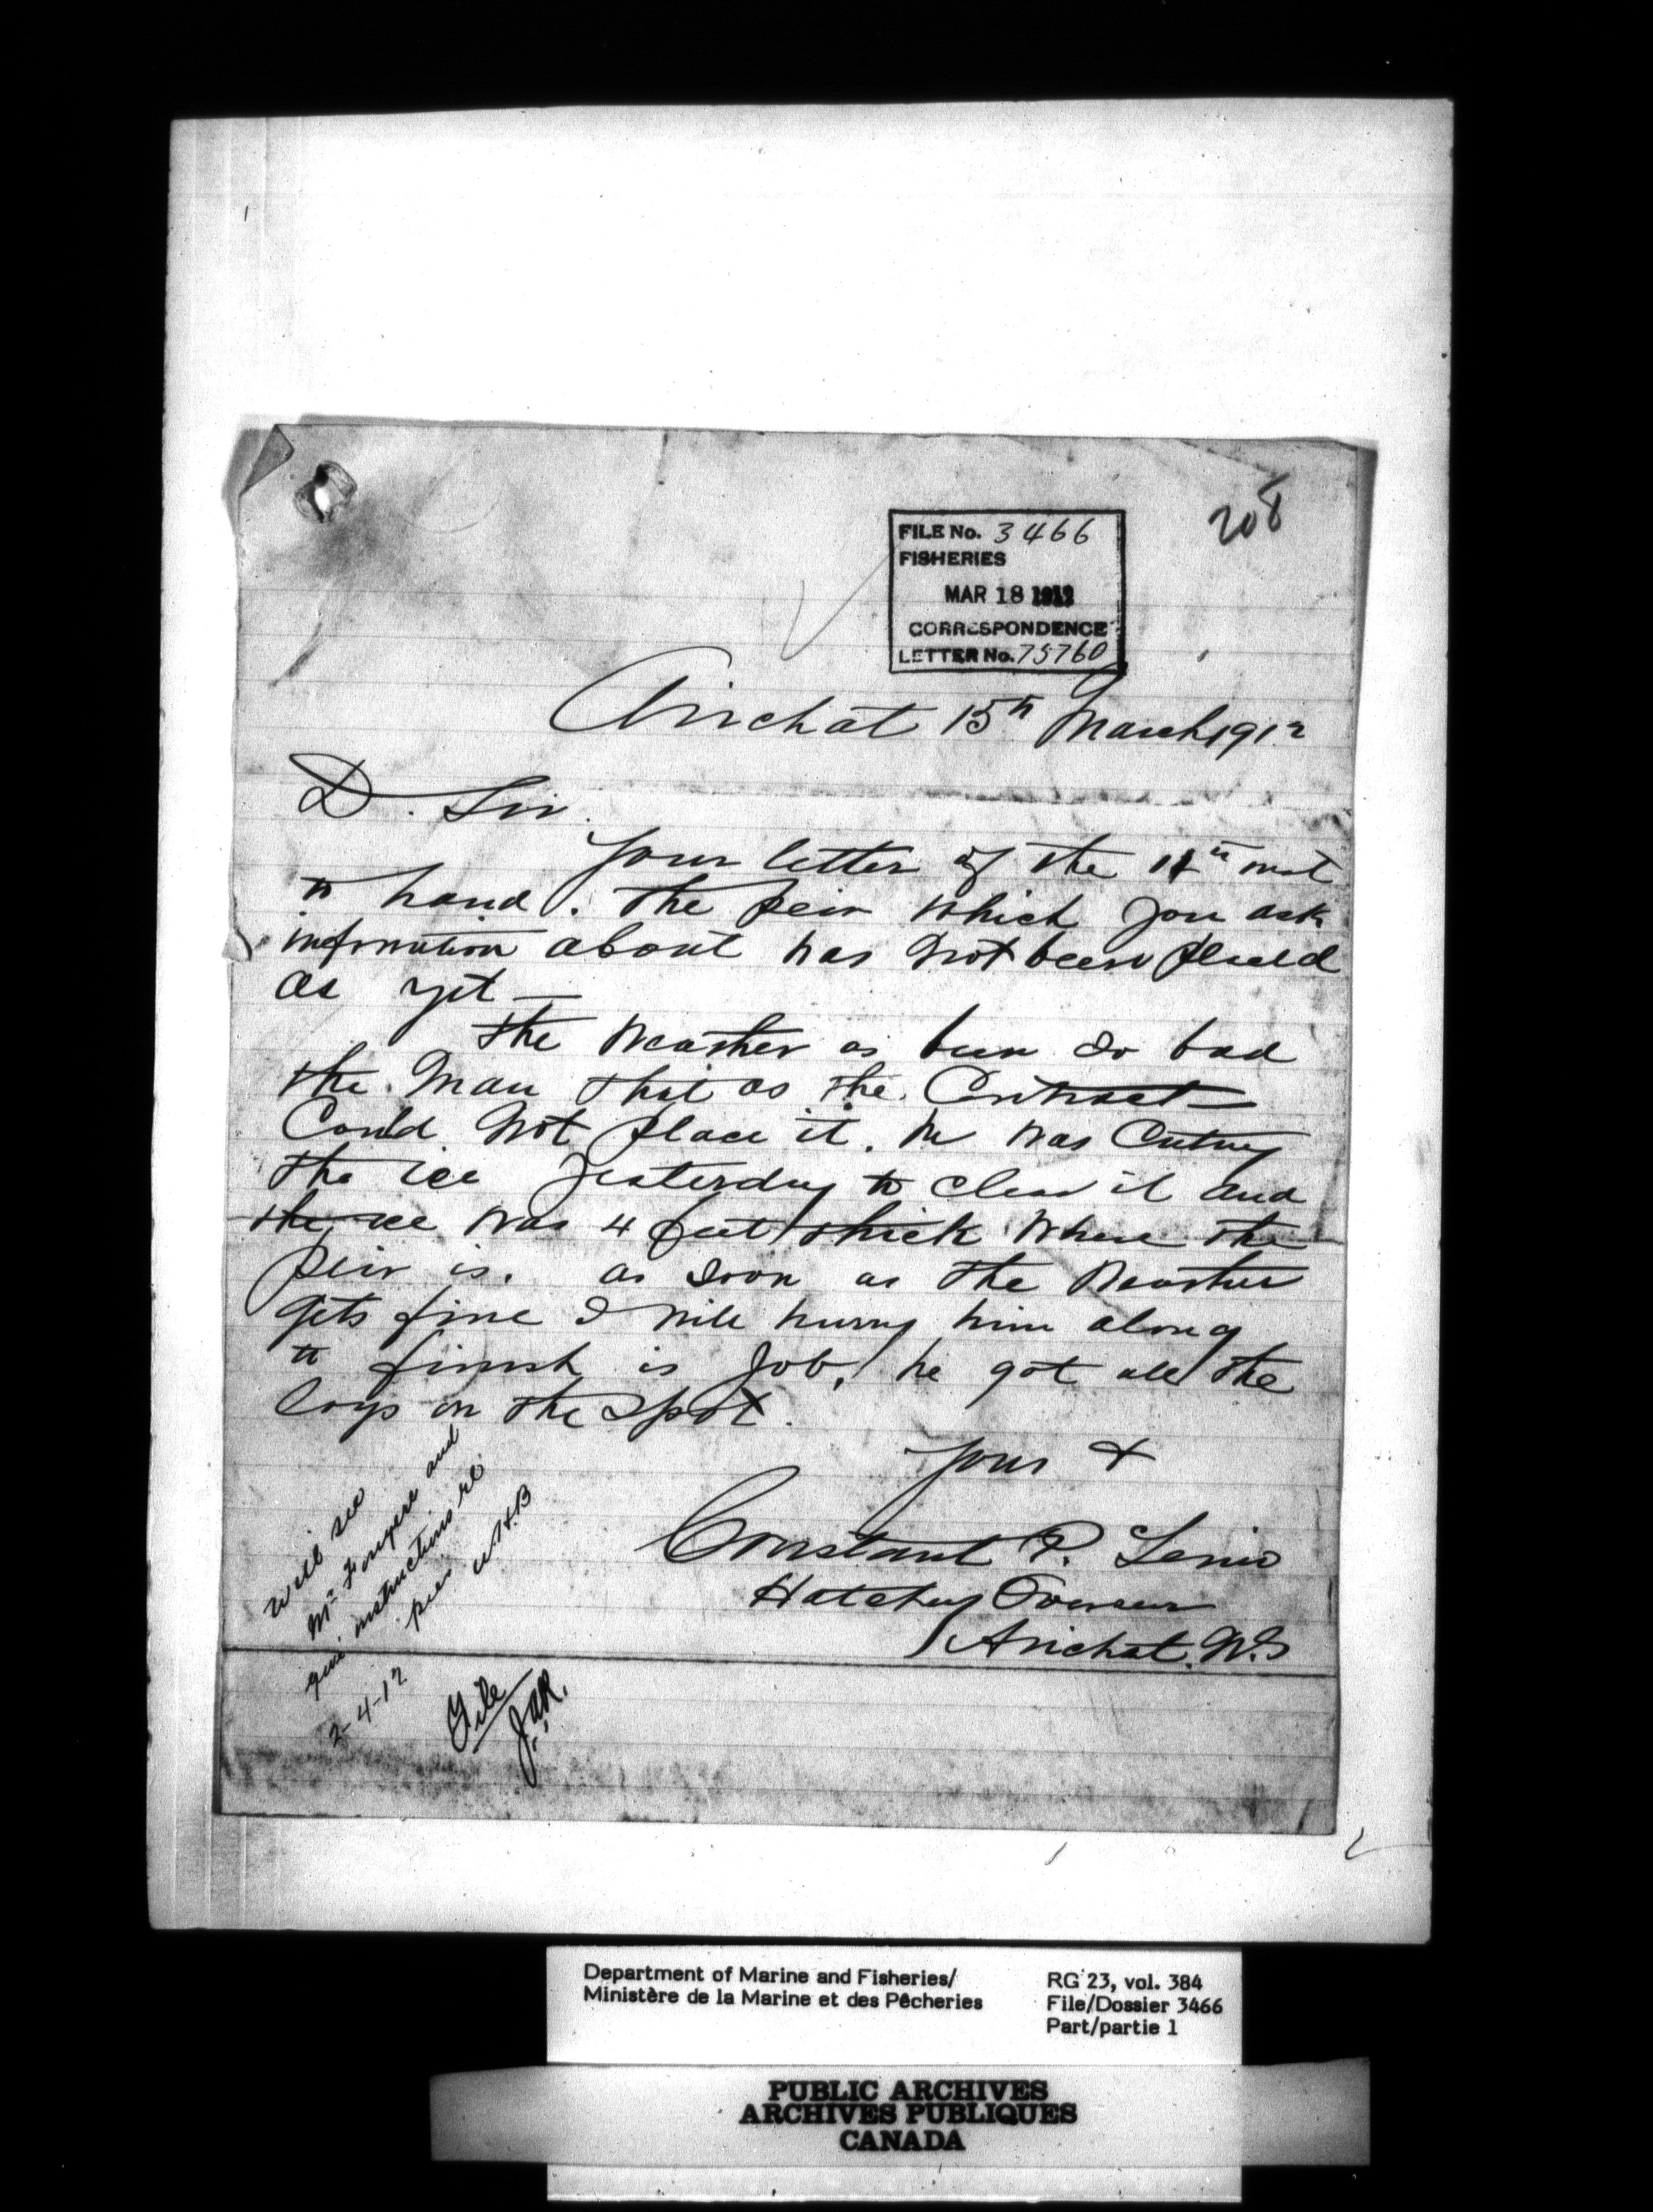 208
FILE No. 3466
FISHERIES
MAR 18 1912
CORRESPONDENCE
LETTER No. 75760
Arichat 15th March 1912
D. Sir.
Your letter of the 11th inst
to hand. The peir which you ask
information about has not been placed
as yet —
the weather as been so bad
the man that as the Contract
Could not place it. he was Cutting
the ice yesterday to clear it and
the ice was 4 feet thick where the
peir is. as soon as the weather
gets fine I will hurry him along
to finish is Job, he got all the
logs on the spot.
Yours &
Constant P.
Hatchery Overseer
Arichat. N.S
Will see
Mr. Fougere and
give instructions re
pier WHB
2-4-12
File
J.A.R.
Department of Marine and Fisheries/
Ministère de la Marine et des Pêcheries
RG 23, vol. 384
File/Dossier 3466
Part/partie 1
PUBLIC ARCHIVES
ARCHIVES PUBLIQUES
CANADA